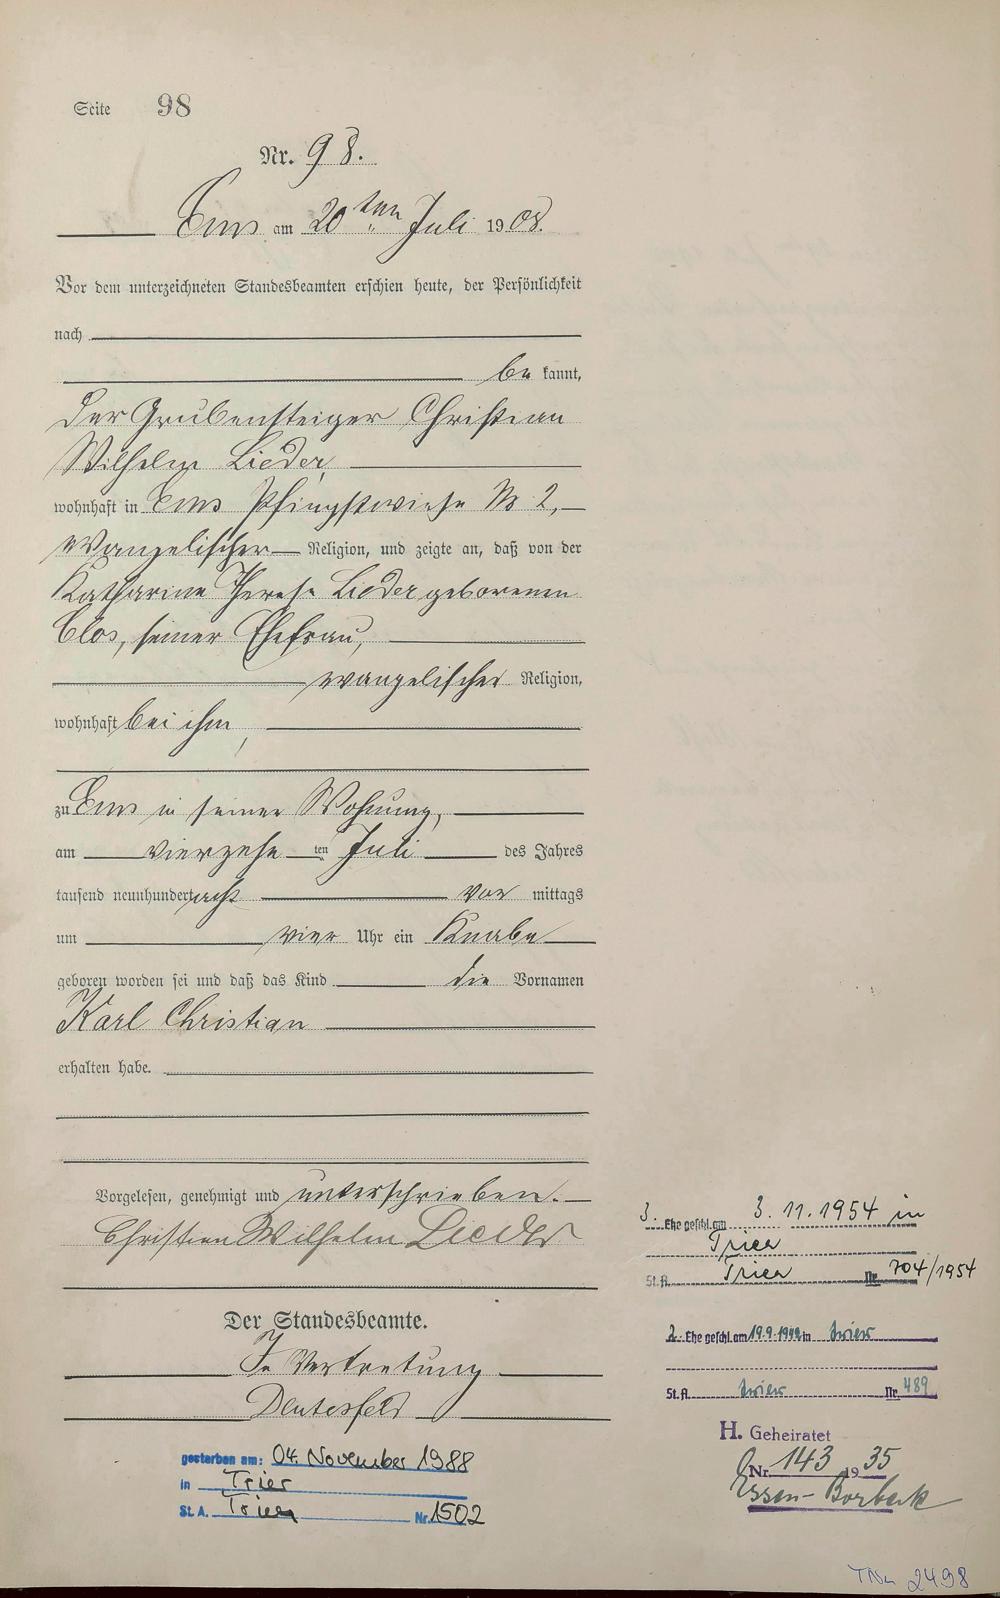 Seite 98
Nr. 98.
Ems am 20ten Juli 1908.
Vor dem unterzeichneten Standesbeamten erschien heute, der Persönlichkeit
nach
bekannt,
der Grubensteiger Christian
Wilhelm Lieder,
wohnhaft in Ems Pfingstwiese No 2,
evangelischer Religion, und zeigte an, daß von der
Katharina Therese Lieder geborenen
Clos, seiner Ehefrau,
evangelischer Religion,
wohnhaft bei ihm,
zu Ems in seiner Wohnung,
am vierzehnten Juli des Jahres
tausend neunhundert acht vormittags
um vier Uhr ein Knabe
geboren worden sei und daß das Kind die Vornamen
Karl Christian
erhalten habe.
Vorgelesen, genehmigt und unterschrieben.
Christian Wilhelm Lieder
Der Standesbeamte.
In Vertretung
gestorben am: 04. November 1988
in Trier
St. A. Trier Nr. 1502
3. Ehe geschl. am 3. 11. 1954 in
Trier
St. A. Trier Nr. 704/1954
2. Ehe geschl. am 19.9. in Trier
St. A. Trier Nr. 489
H. Geheiratet
Nr. 143 1935
Essen-Borbeck
2498